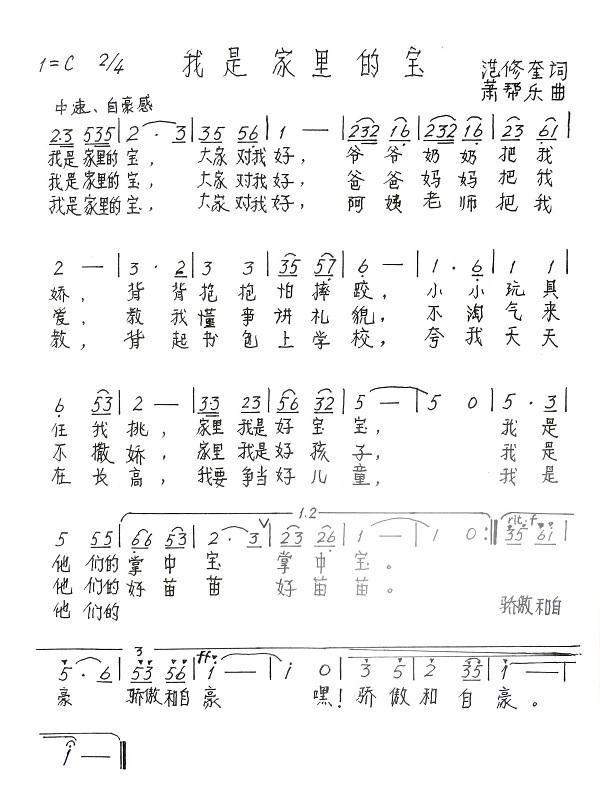 1=C 2/4 我是家里的宝 范修奎词
萧帮乐曲
中速、自豪感
2·3 535 | 2 · 3 | 35 56 | 1 — | 232 16 | 232 16 | 23 61 |
我是家里的宝， 大家对我好， 爷爷奶奶把我
我是家里的宝， 大家对我好， 爸爸妈妈把我
我是家里的宝， 大家对我好， 阿姨老师把我
2 — | 3 · 2 | 3 3 | 35 57 | 6 — | 1 · 6 | 1 1 |
娇， 背背抱抱怕摔跤， 小小玩具
爱， 教我懂事讲礼貌， 不淘气来
教， 背起书包上学校， 夸我天天
6 53 | 2 — | 33 23 | 56 32 | 5 — | 5 0 | 5 · 3 |
任我挑， 家里我是好宝宝， 我是
不撒娇， 家里我是好孩子， 我是
在长高， 我要争当好儿童， 我是
1.2 rit. f
5 55 | 66 53 | 2 · 3 | 23 26 | 1 — | 1 0 :‖ 35 61 |
他们的掌中宝 掌中宝。
他们的好苗苗 好苗苗。
他们的 骄傲和自
3 ff
5 · 6 | 53 56 | i — | i 0 | 3 5 | 2 35 | i — |
豪 骄傲和自豪 嘿！骄傲和自豪。
i — ‖